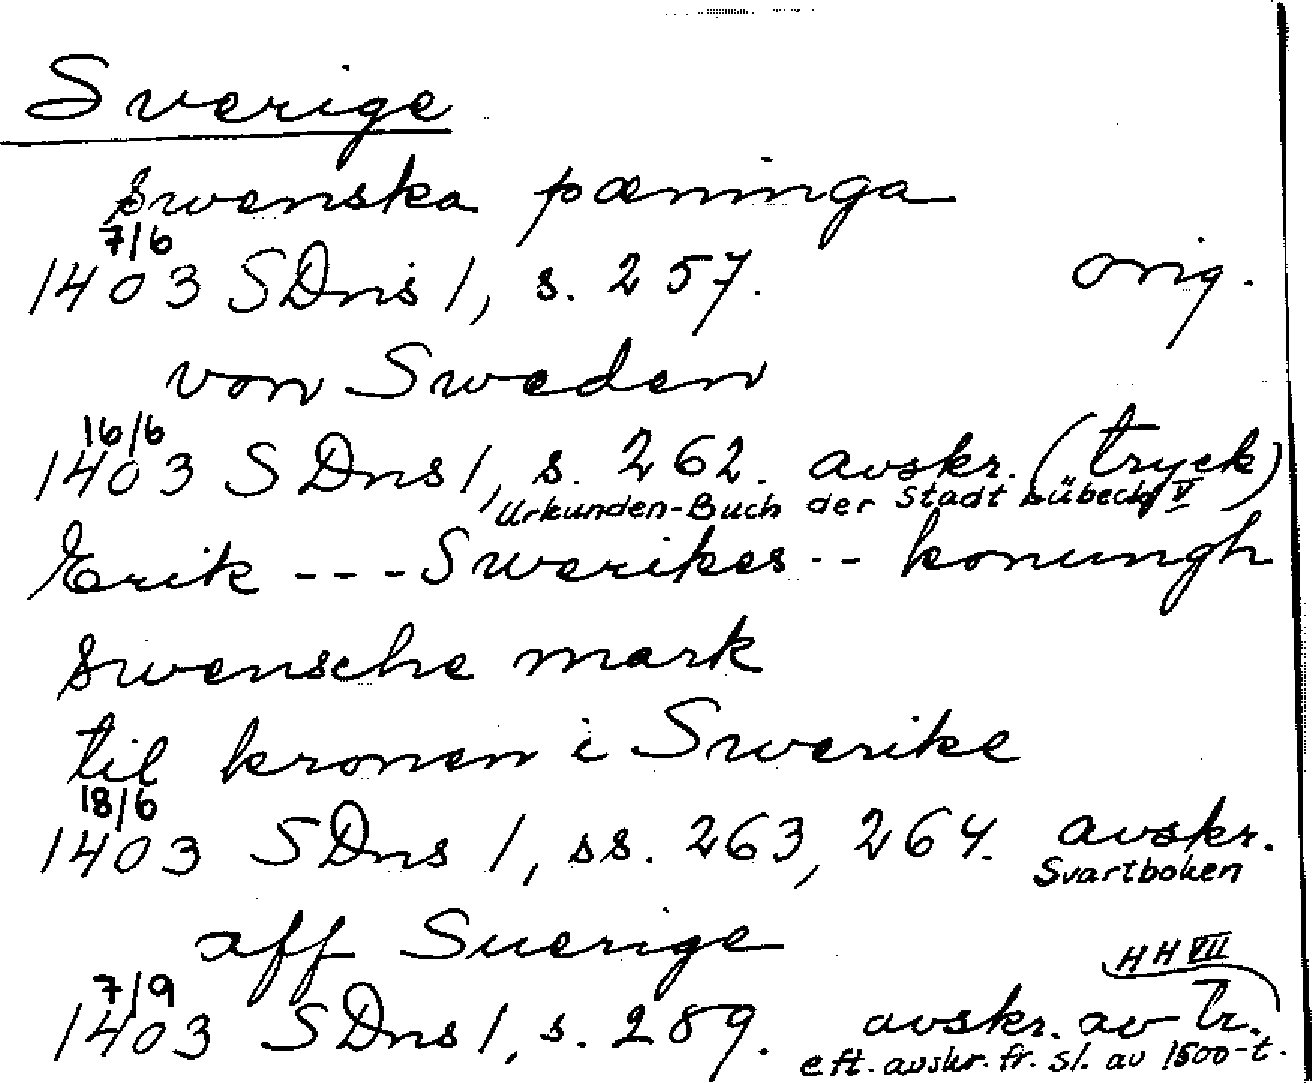 Sverige
swenska pæninga
7/6
1403 SDns 1, s. 257. orig.
von Sweden
16/6
1403 SDns 1, s. 262. avskr. (tryck)
Urkunden-Buch der Stadt Lübeck V
Erik --- Swerikes -- konungh
swensche mark
til kronen i Swerike
18/6
1403 SDns 1, ss. 263, 264. avskr.
Svartboken
aff Suerige
HH VII
7/9
1403 SDns 1, s. 289. avskr. av tr.
eft. avskr. fr. sl. av 1500-t.